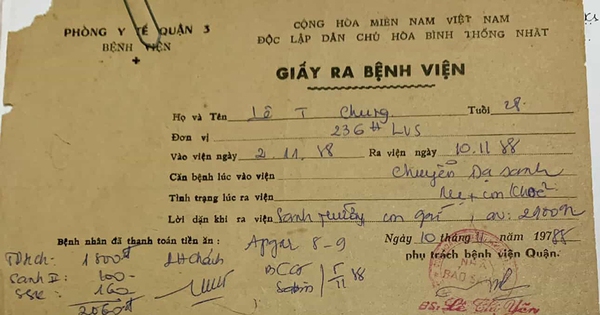 PHÒNG Y TẾ QUẬN 3
BỆNH VIỆN
CỘNG HÒA MIỀN NAM VIỆT NAM
ĐỘC LẬP DÂN CHỦ HÒA BÌNH THỐNG NHẤT
GIẤY RA BỆNH VIỆN
Họ và Tên Lê T Chung Tuổi 28
Đơn vị 236 LVS
Vào viện ngày 2.11.88 Ra viện ngày 10.11.88
Căn bệnh lúc vào viện Chuyển Dạ sanh
Tình trạng lúc ra viện Mẹ + con khoẻ
Lời dặn khi ra viện Sanh thường con gái, CN: 2900g
Bệnh nhân đã thanh toán tiền ăn: Apgar 8-9
Ngày 10 tháng 11 năm 19788
phụ trách bệnh viện Quận.
1800đ
Sanh II: 100
BCG
Sabin
5/11/88
160
2060đ
BS: Lê Thị Yến